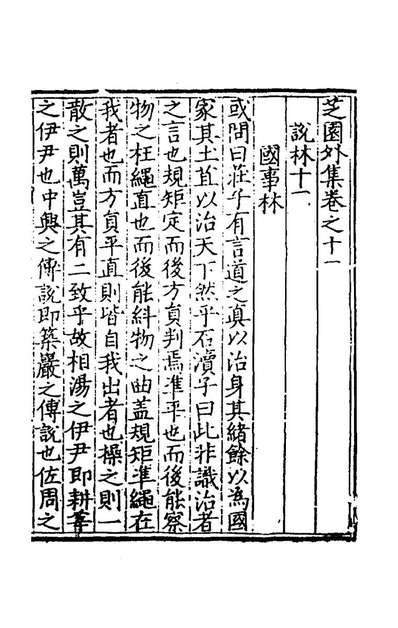 芝園外集卷之十一
說林十一
國事林
或問曰莊子有言道之真以治身其緒餘以為國
家其土苴以治天下然乎石瀆子曰此非識治者
之言也規矩定而後方員判焉准平也而後能察
物之枉繩直也而後能糾物之曲盖規矩準繩在
我者也而方員平直則皆自我出者也操之則一
散之則萬豈其有二致乎故相湯之伊尹即耕莘
之伊尹也中興之傅說即築巖之傅說也佐周之